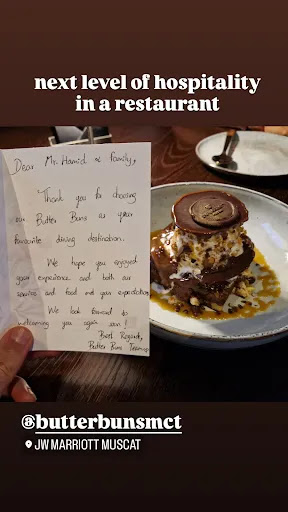 next level of hospitality
in a restaurant
Dear Mr. Hamid & family,
Thank you for choosing
our Butter Buns as your
favourite dining destination.
We hope you enjoyed
your experience and both our
service and food met your expectation.
We look forward to
welcoming you again soon!
Best Regards,
Butter Buns Team
@butterbunsmct
JW MARRIOTT MUSCAT